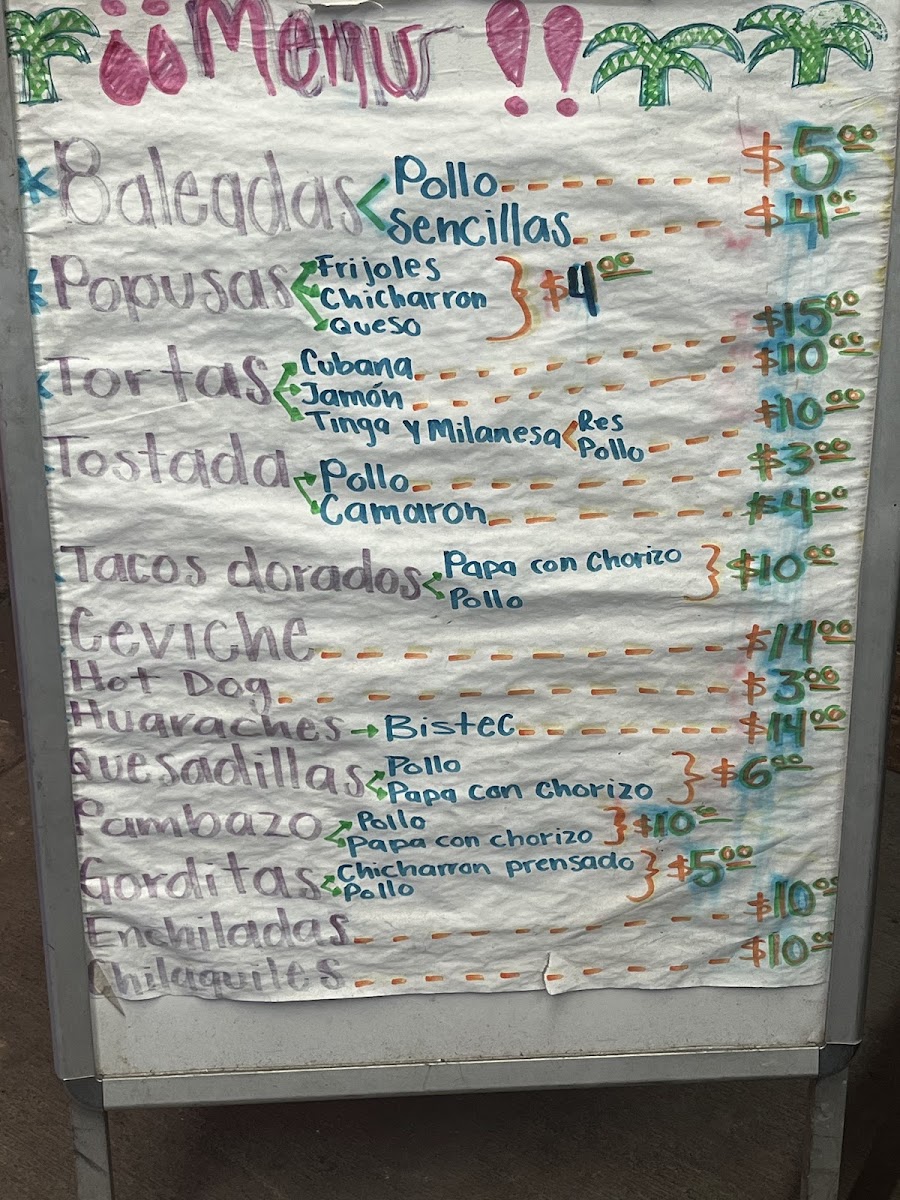 ¡¡Menu!!
Baleadas Pollo $5.00
Sencillas $4.00
Popusas Frijoles
Chicharron $4.00
Queso
Tortas Cubana $15.00
Jamón $10.00
Tinga Y Milanesa Res
Pollo $10.00
Tostada Pollo $3.00
Camaron $4.00
Tacos dorados Papa con Chorizo
Pollo $10.00
Ceviche $14.00
Hot Dog $3.00
Huaraches → Bistec $14.00
Quesadillas Pollo
Papa con Chorizo $6.00
Pambazo Pollo
Papa con chorizo $10.00
Gorditas Chicharron prensado
Pollo $5.00
Enchiladas $10.00
Chilaquiles $10.00